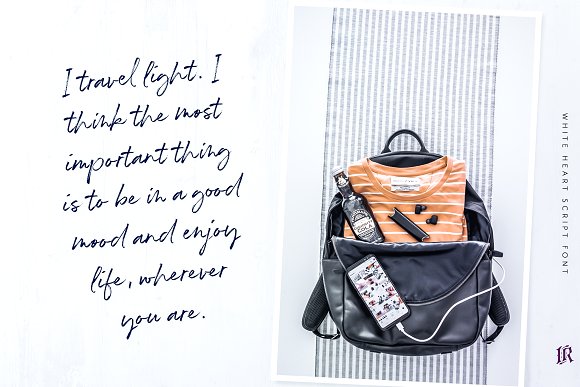 I travel light. I
think the most
important thing
is to be in a good
mood and enjoy
life, wherever
you are.
WHITE HEART SCRIPT FONT